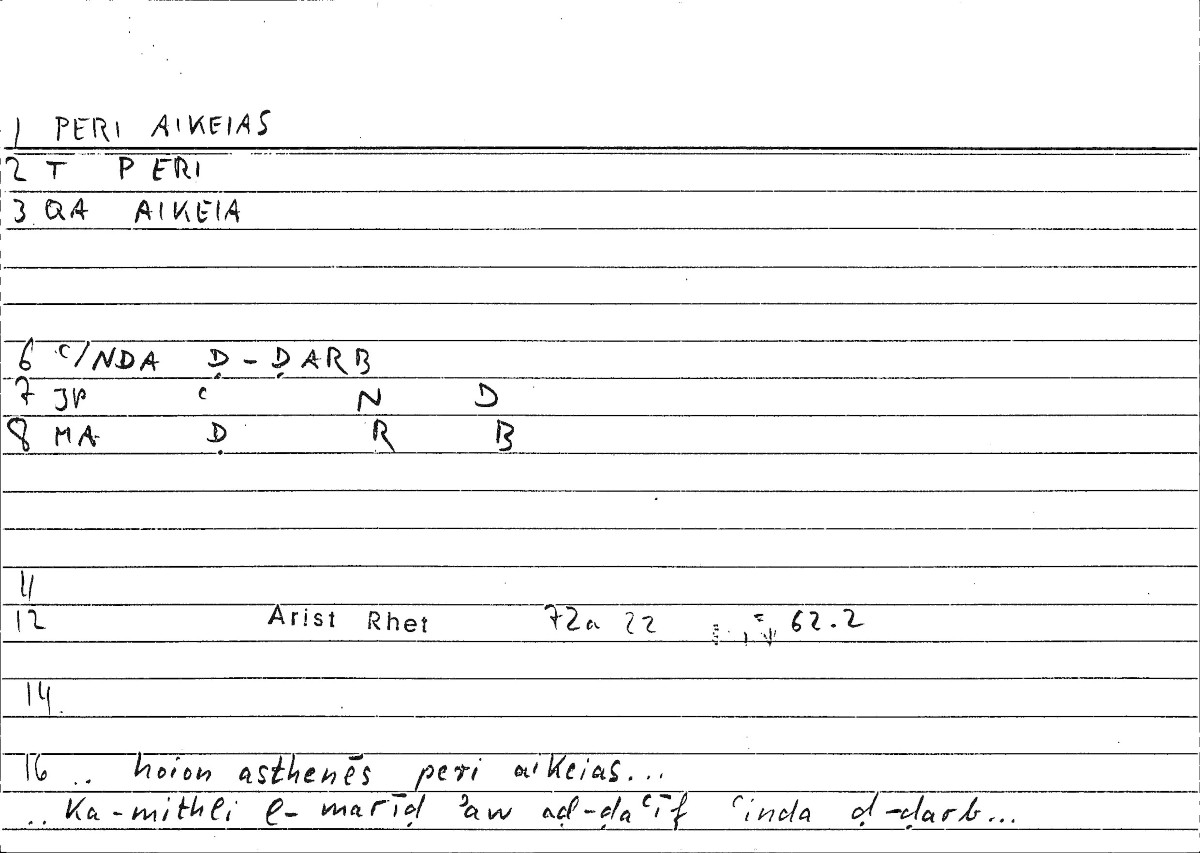 1 PERI AIKEIAS
2 T PERI
3 QA AIKEIA
6 ʿ/NDA Ḍ-ḌARB
7 JP ʿ N D
8 MA Ḍ R B
11
12 Arist Rhet 72a 22 = 62.2
14.
16 .. hoion asthenēs peri aikeias...
.. Ka-mithli l- marīḍ ʾaw aḍ-ḍaʿīf ʿinda ḍ-ḍarb...